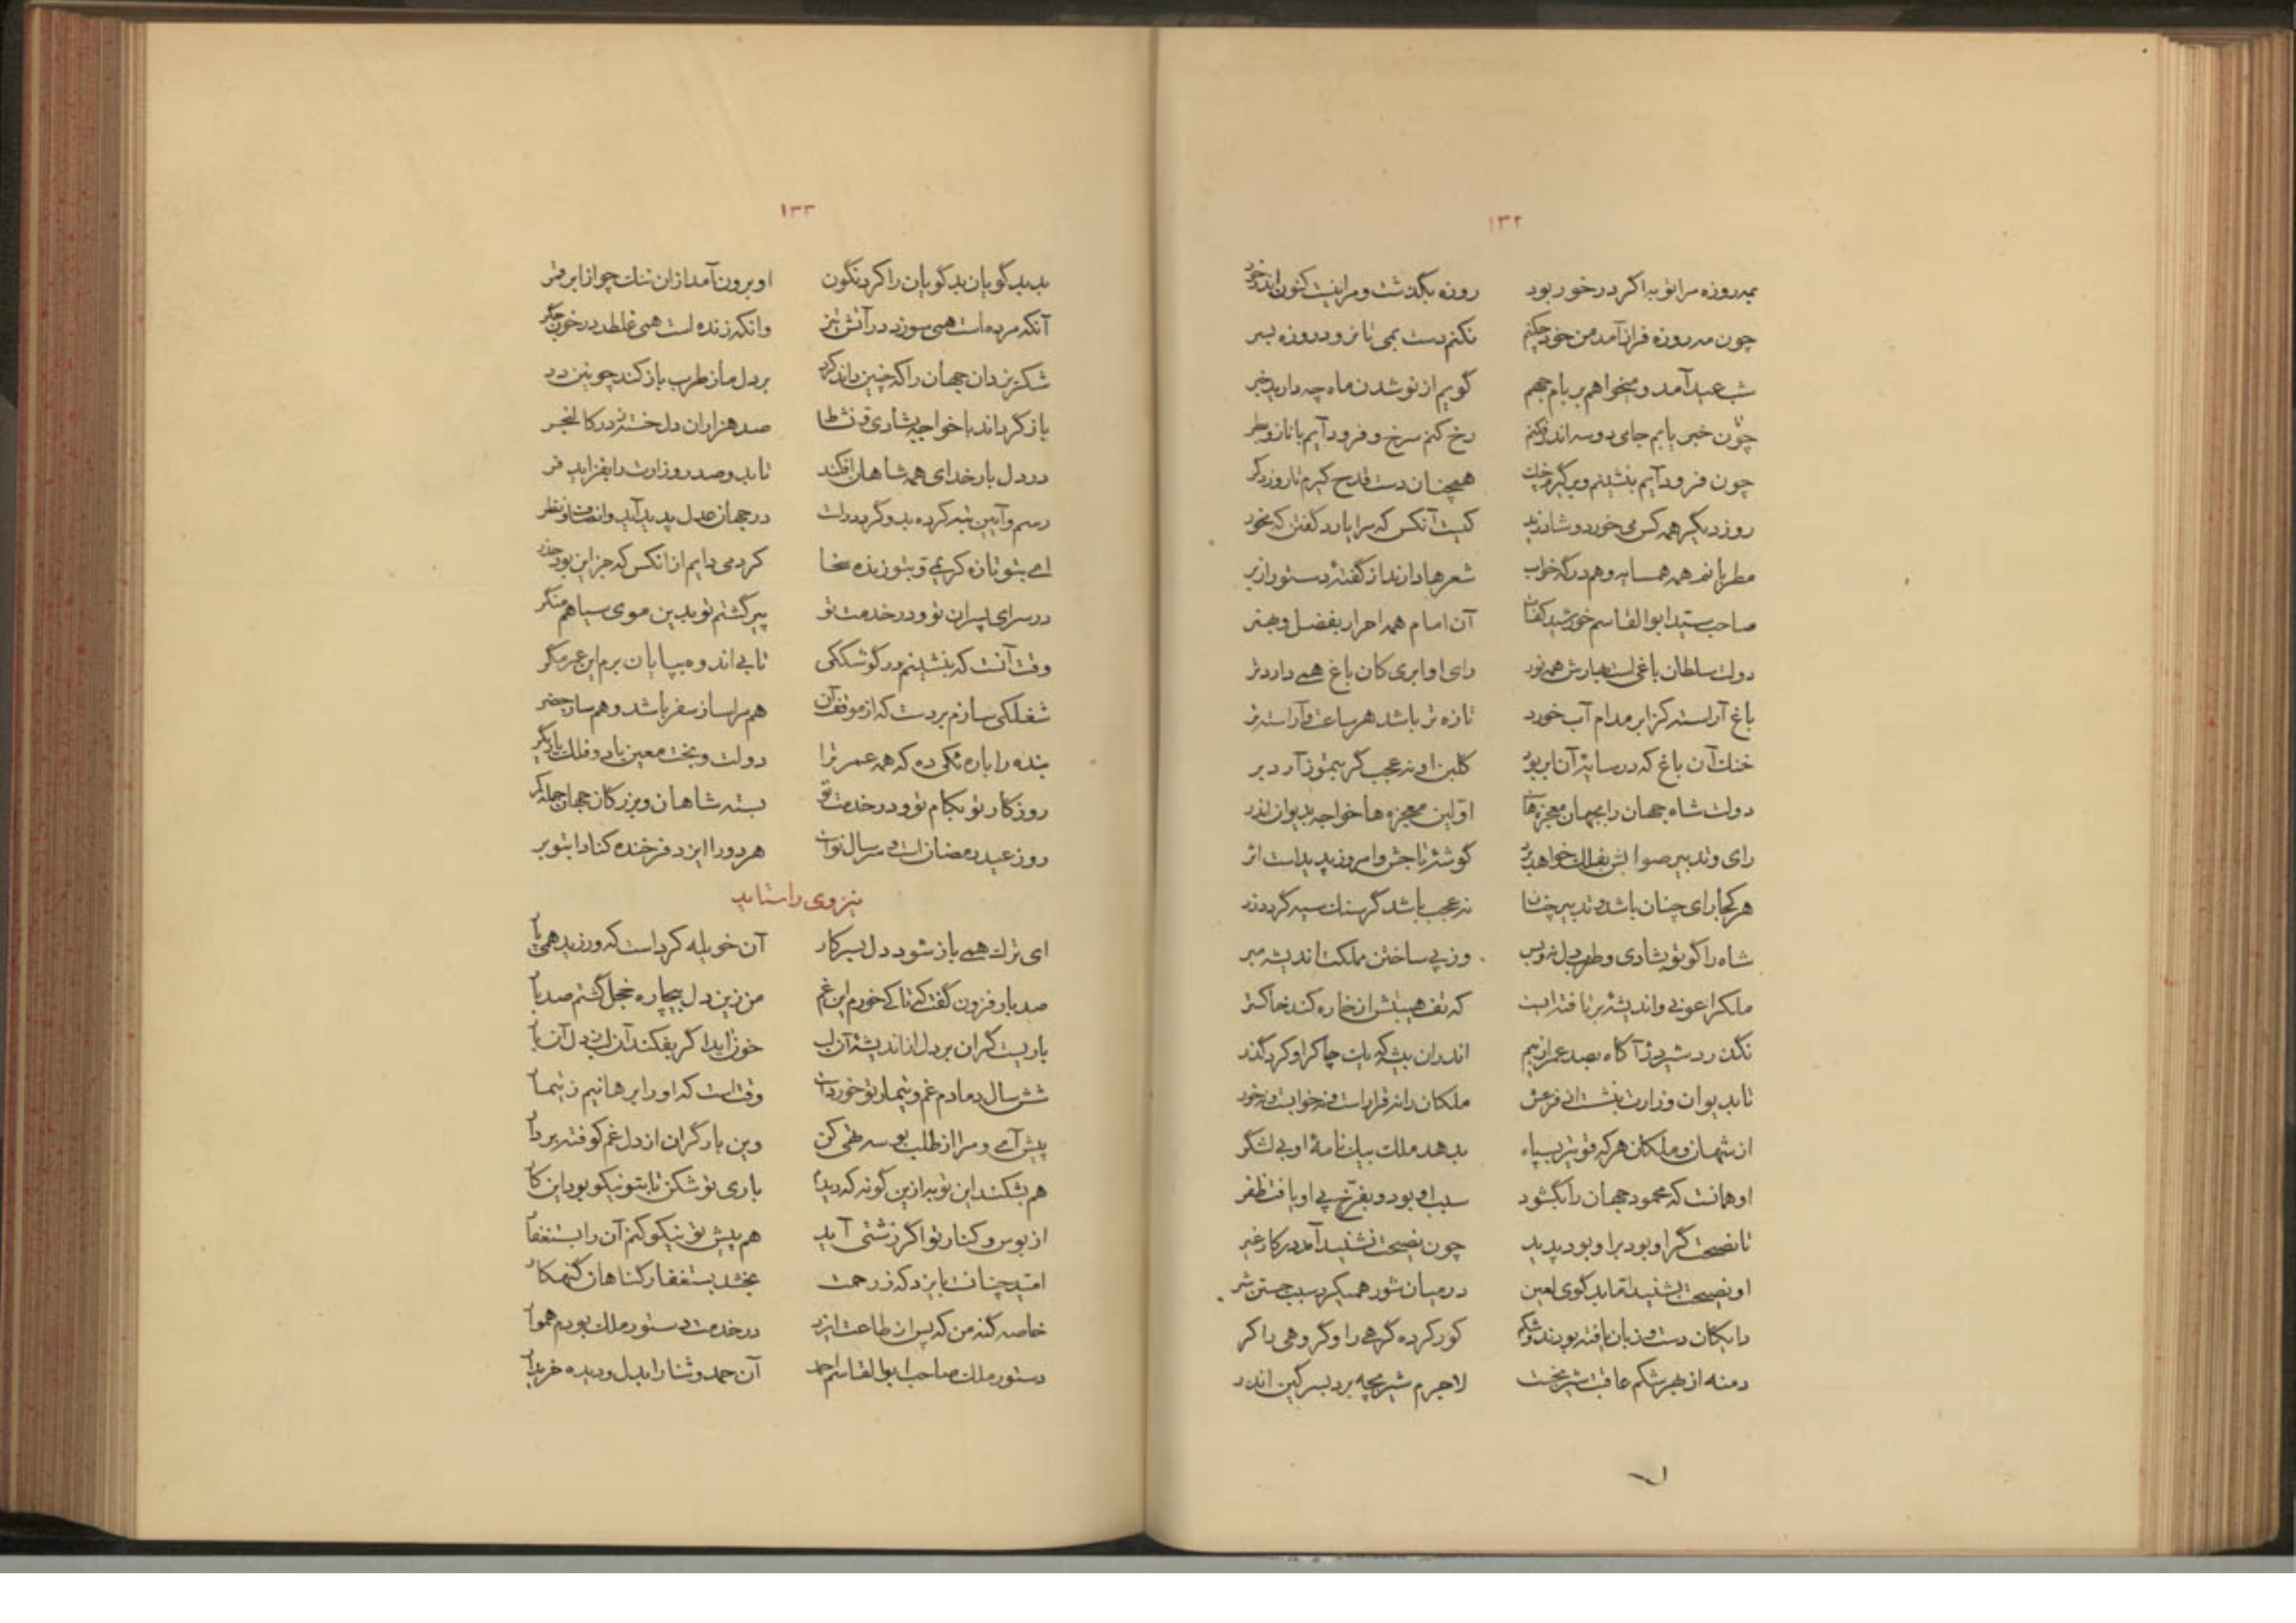 ۱۳۲
بمه روزه مرا توبه اگر درخور بود روزه بگذشت و مرا نیست کنون اندر خور
چون مه روزه فراز آمد من خود چکنم نکنم دست بمی تا نرود روزه بسر
شب عید آمد و میخواهم بر بام جهم گویم از نو شدن ماه چه دارید خبر
چون خبر یابم جای دو سه اندر فکنم رخ کنم سرخ و فرود آیم با ناز و بطر
چون فرود آیم بنشینم و برگیرم چنگ همچنان دست قدح گیرم تا روز دگر
روز دیگر همه کس می خورد و شاد زید کیست آنکس که مرا یارد گفتن که مخور
مطربانند همه همسایه و هم درگه خواب شعرها دارند از گفته دستور از بر
صاحب سید ابوالقاسم خورشید کفات آن امام همه احرار بفضل و هنر
دولت سلطان باغی است بهارش همه نور رای او ابری کان باغ همی دارد تر
باغ آراسته کز ابر مدام آب خورد تازه تر باشد هر ساعت و آراسته تر
خنک آن باغ که در سایه آن ابر بود گلبن او نه عجب گر بتموز آرد بر
دولت شاه جهان را بجهان معجزهاست اولین معجزه ها خواجه بدیوان اندر
رای و تدبیر صوابش بفلک خواهد برد گوشه تاجش و امروز پدید است اثر
هر کجا رای چنان باشد و تدبیر چنان نه عجب باشد گر سنگ سیه گردد زر
شاه را گو تو بشادی و طرب دل نه و بس وز پی ساختن مملکت اندیشه مبر
ملکرا عونی و اندیشه بر تافته ایست که تف هیبتش از خاره کند خاکستر
نگذرد شیر دژ آگاه بصد عمر از بیم اندران بیشه که یک چاکر او کرد گذر
تا بدیوان وزارت بنشست از فر عش ملکان را نه قرار است و نه خوابست و نه خور
از شهان و ملکان هر که قوی تر بسپاه بدهد ملک بیک نامه او بی لشگر
او همانست که محمود جهان را بگشود سبب او بود و بفرّخ پی او یافت ظفر
تا نصیحت گر او بود بر او بود پدید چون نصیحت نشنید آمد در کار غیر
او نصیحت بشنید اما بد گوی لعین در میان شور همیکرد سبب جستن شر
دایگان دست و زبان یافته بودند و شکم کور کرده گرهی را و گروهی را کر
دمنه از بهر شکم عاقبت شر بخت لاجرم شیر بچه برد بسرگین اندر
۱۳۳
بد بد گویان بد گویان را کرد نگون او برون آمد از آن ننگ چو از ابر قمر
آنکه مرده است همی سوزد در آتش تیز وانکه زنده است همی غلطد در خون جگر
شکر یزدان جهان را که چنین داند کرد بر دل ما ز طرب باز کند چونین در
باز گرداند با خواجه بشادی و نشاط صد هزاران دل خسته ز در کالنجر
در دل بار خدای همه شاهان افکند تا بدو صدر وزارت را بفزاید فر
رسم و آیین تبه کرده بدو گردد راست در جهان عدل پدید آید و انصاف و نظر
ای بتو تازه کریمی و بتو زنده سخا کردمی دایم از آنکس که جز این بود حذر
در سرای پسران تو و در خدمت تو پیر گشتم تو بدین موی سیاهم منگر
وقت آنست که بنشینم در گوشککی تا بی اندوه بپایان برم این عمر مگر
شغلکی سازم بر دست که از موقف آن هم مرا ساز سفر باشد و هم ساز حضر
بنده را باره نکی ده که همه عمر ترا دولت و بخت معین باد و فلک یاریگر
روزگار تو بکام تو و در خدمت تو بسته شاهان و بزرگان جهان جمله کمر
روز عید رمضان است و سر سال نو است هر دو را ایزد فرخنده کناد ابتو بر
نیز وی را ستاید
ای ترک همی باز شود دل بسر کار آن خو یله کرد است که ورزید همی پار
صد بار فزون گفت که تا کی خورم این غم من زین دل بیچاره خجل گشتم صد بار
باریست گران بر دل از اندیشه آن لب خوز ایدا گر بفکند آن از دل آن بار
شش سال دمادم غم و تیمار تو خورد است وقت است که او را برهانیم ز تیمار
پیش آی و مرا از طلب بوسه طی کن وین بار گران از دل غم کوفته بردار
هم بشکند این توبه ازین گونه که دیدم باری تو شکن تا بتو نیکو بود این کار
از بوس و کنار تو اگر زشتی آید هم پیش تو نیکو کنم آن را بستغفار
امید چنانست بایزد که ز رحمت بخشد بستغفار گناهان گنهکار
خاصه گنه من که پس از طاعت ایزد در خدمت دستور ملک بودم هموار
دستور ملک صاحب ابوالقاسم احمد آن حمد و ثنا را بدل و دیده خریدار